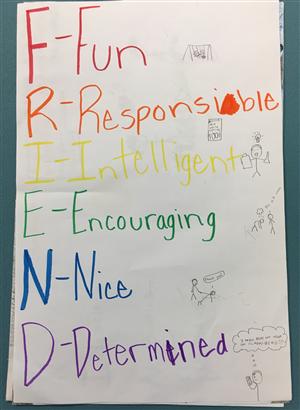 F-Fun
R-Responsible
I-Intelligent
E-Encouraging
N-Nice
D-Determined